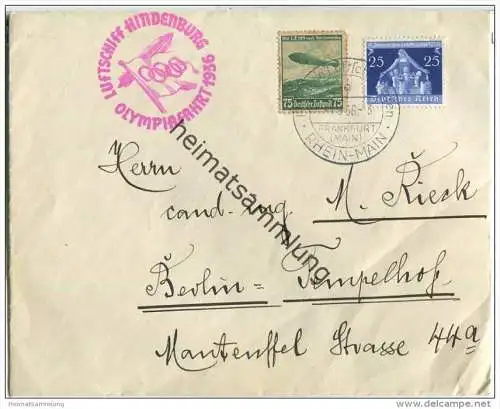 LUFTSCHIFF HINDENBURG
OLYMPIAFAHRT 1936
75 Deutsche Luftpost 75
25 25
Deutsches Reich
FRANKFURT
(MAIN)
RHEIN-MAIN
heimatsammlung
Herrn
cand. ing. M. Rieck
Berlin = Tempelhof.
Manteuffel Strasse 44a
Heimatsammlung
delcampe.net